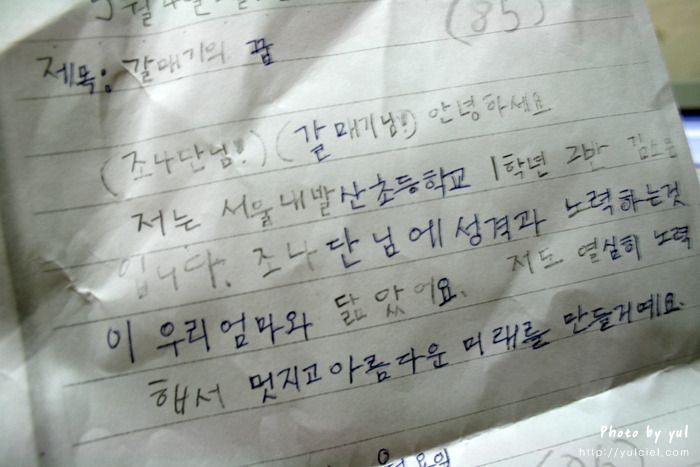 (85)
제목: 갈매기의 꿈
(조나단님!) (갈매기님!) 안녕하세요
저는 서울내발산초등학교 1학년 2반 김소은
입니다. 조나단님에 성격과 노력하는것
이 우리엄마와 닮았어요. 저도 열심히 노력
해서 멋지고아름다운 미래를 만들거예요.
요일
Photo by yul
http://yulciel.com